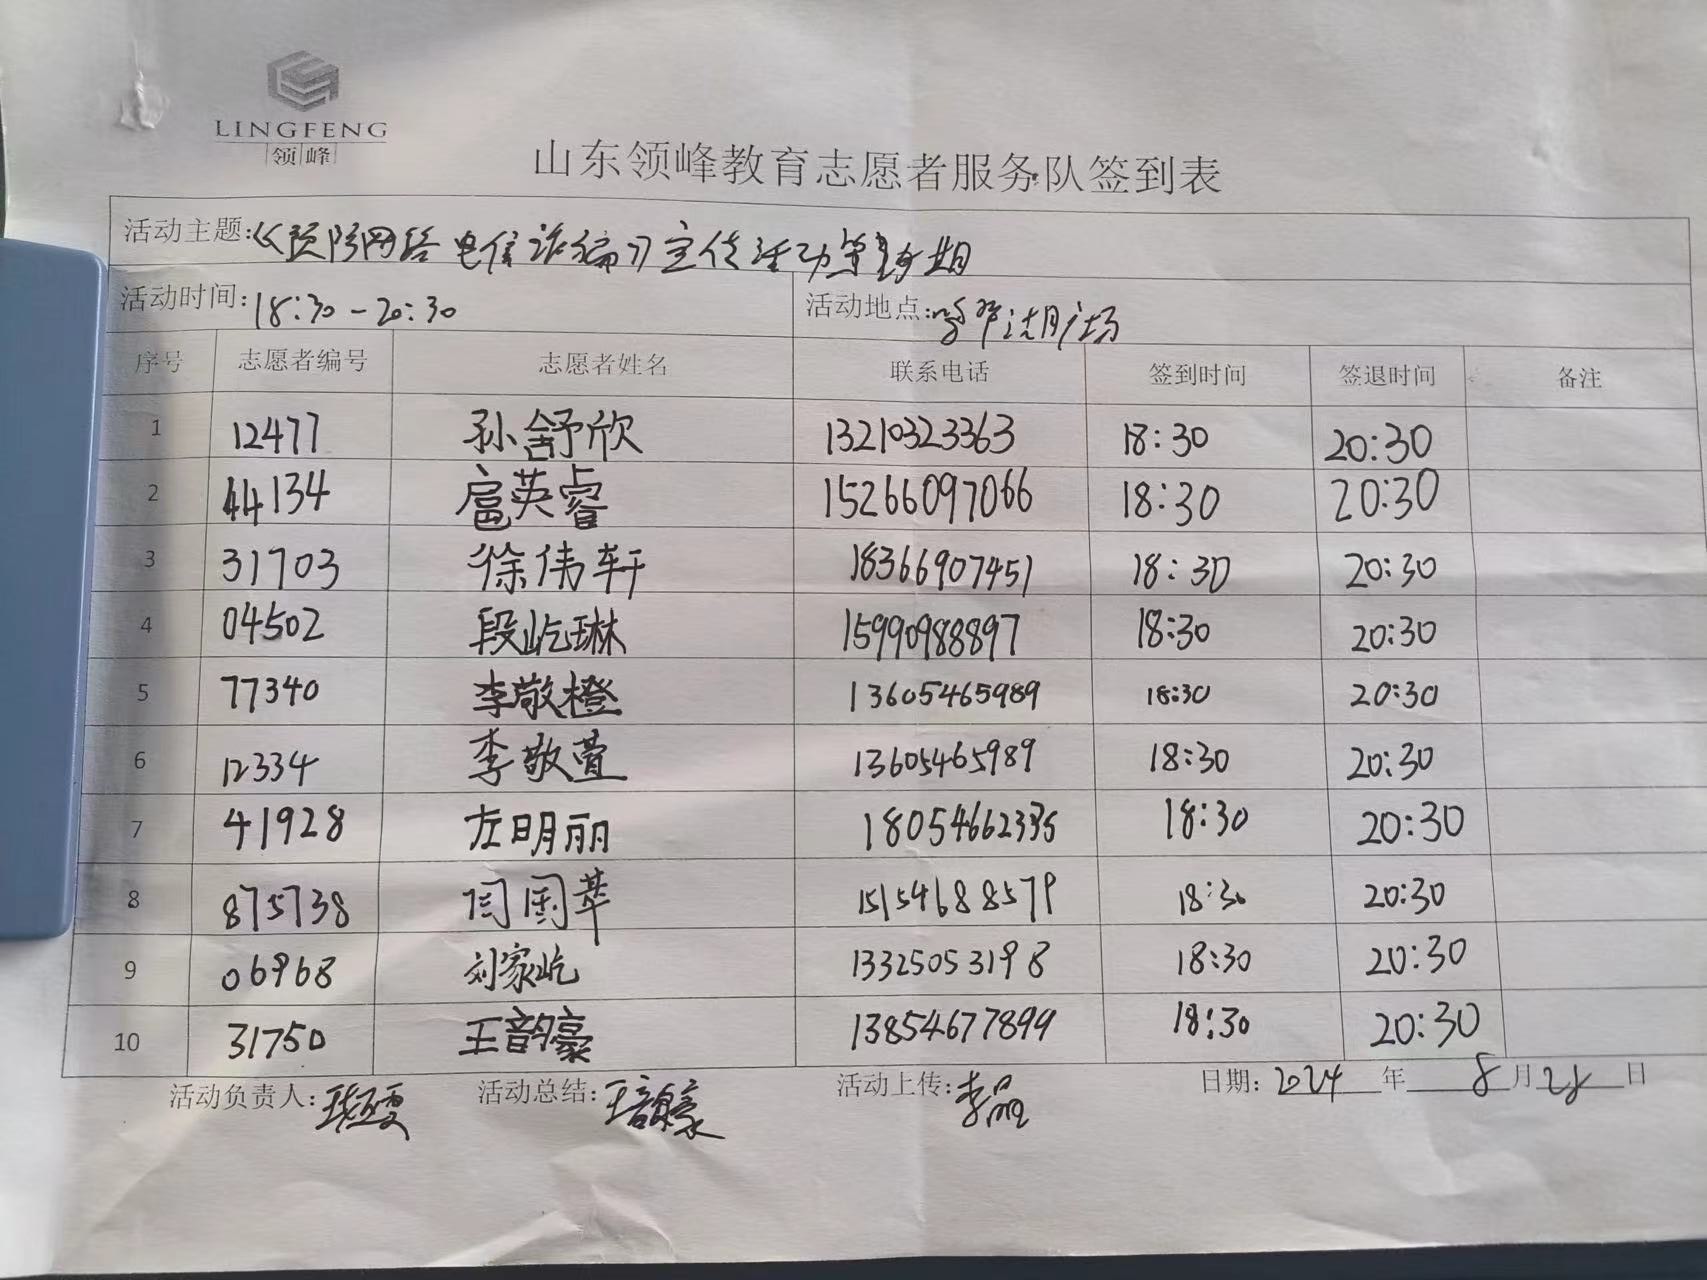 LINGFENG
领峰
山东领峰教育志愿者服务队签到表
活动主题:《预防网络电信诈骗》宣传活动第 期
活动时间:18:30-20:30 活动地点: 广场
序号 志愿者编号 志愿者姓名 联系电话 签到时间 签退时间 备注
1 12477 孙舒欣 13210323363 18:30 20:30
2 44134 扈英睿 15266097066 18:30 20:30
3 31703 徐伟轩 18366907451 18:30 20:30
4 04502 段屹琳 15990988897 18:30 20:30
5 77340 李敬橙 13605465989 18:30 20:30
6 12334 李敬萱 13605465989 18:30 20:30
7 41928 左明丽 18054662335 18:30 20:30
8 875738 闫国苹 15154688579 18:30 20:30
9 06968 刘家屹 13325053198 18:30 20:30
10 31750 王韵豪 13854677899 18:30 20:30
活动负责人: 活动总结:王韵豪 活动上传:李晶 日期:2024年8月28日